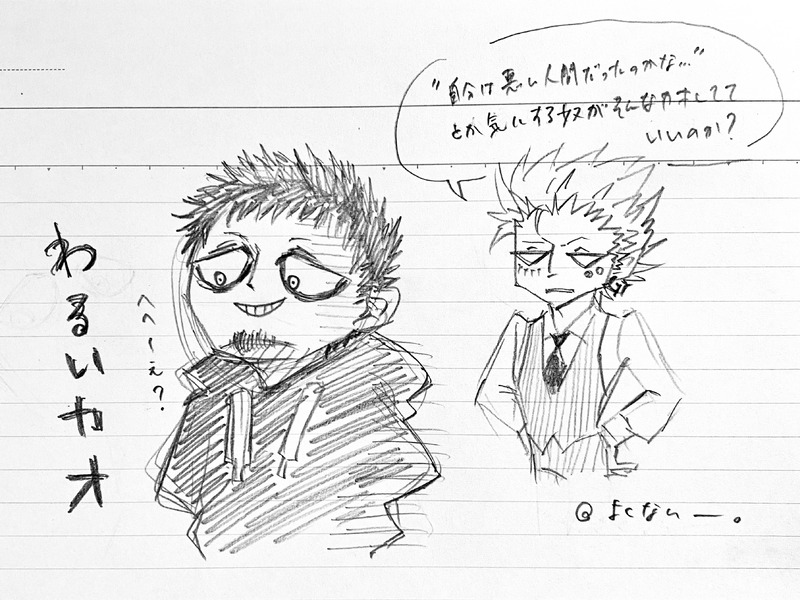 "自分は悪い人間だったのかな…"
とか気にする奴がそんなカオしてて
いいのか?
わるいカオ
へへーぇ?
@よくないー。